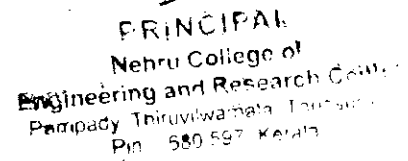 PRINCIPAL
Nehru College of
Engineering and Research
Pampady Thiruvilwamala
Pin 680 597 Kerala